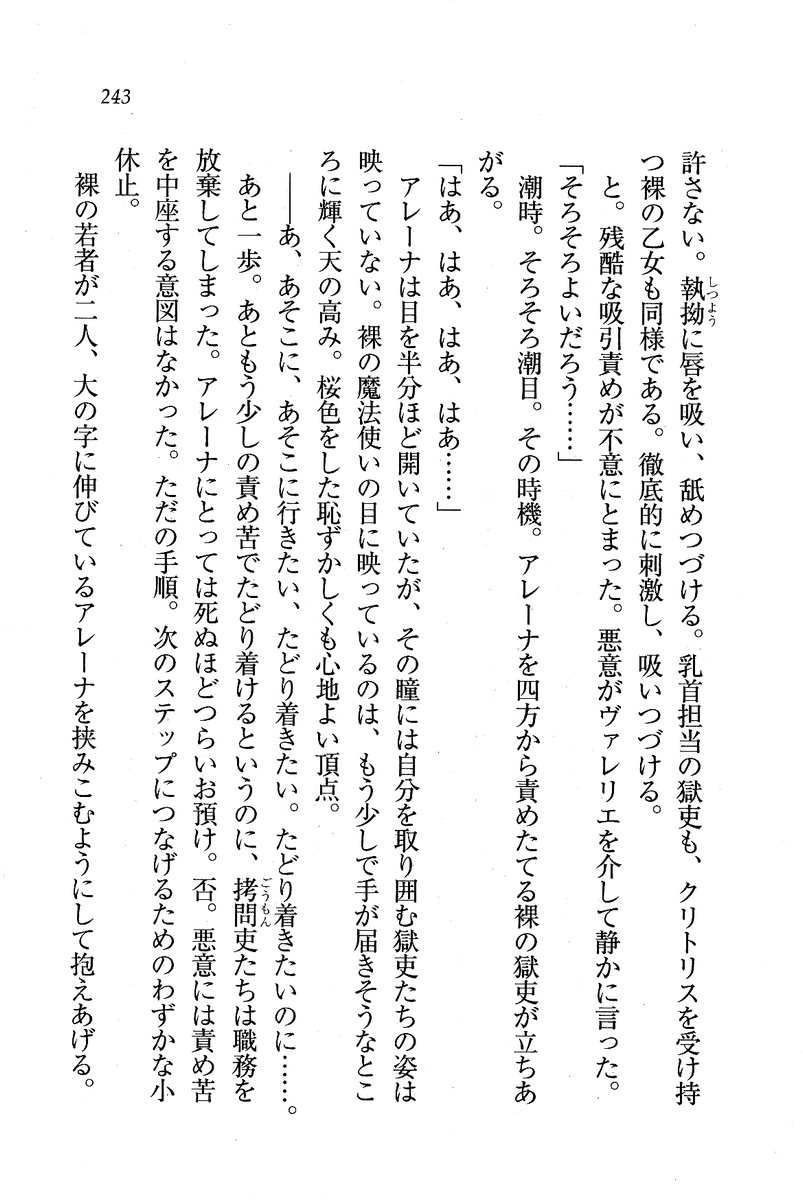 243
許さない。執拗に唇を吸い、舐めつづける。乳首担当の獄吏も、クリトリスを受け持
つ裸の乙女も同様である。徹底的に刺激し、吸いつづける。
と。残酷な吸引責めが不意にとまった。悪意がヴァレリエを介して静かに言った。
「そろそろよいだろう……」
潮時。そろそろ潮目。その時機。アレーナを四方から責めたてる裸の獄吏が立ちあ
がる。
「はあ、はあ、はあ、はあ……」
アレーナは目を半分ほど開いていたが、その瞳には自分を取り囲む獄吏たちの姿は
映っていない。裸の魔法使いの目に映っているのは、もう少しで手が届きそうなとこ
ろに輝く天の高み。桜色をした恥ずかしくも心地よい頂点。
――あ、あそこに、あそこに行きたい、たどり着きたい。たどり着きたいのに……。
あと一歩。あともう少しの責め苦でたどり着けるというのに、拷問吏たちは職務を
放棄してしまった。アレーナにとっては死ぬほどつらいお預け。否。悪意には責め苦
を中座する意図はなかった。ただの手順。次のステップにつなげるためのわずかな小
休止。
裸の若者が二人、大の字に伸びているアレーナを挟みこむようにして抱えあげる。